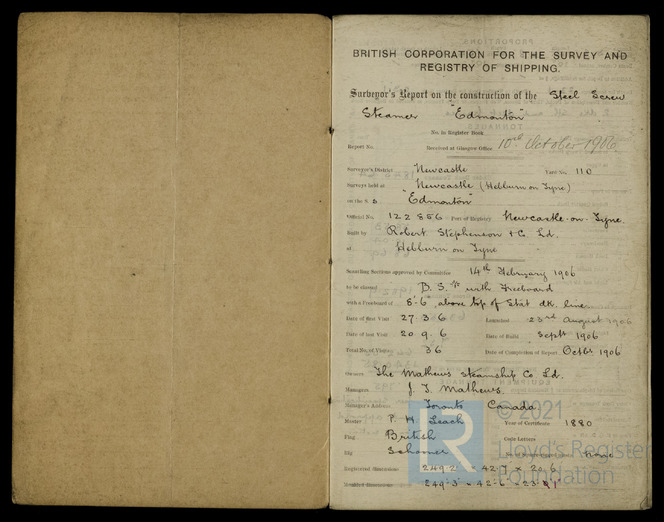 BRITISH CORPORATION FOR THE SURVEY AND
REGISTRY OF SHIPPING.
Surveyor's Report on the construction of the Steel Screw
Steamer "Edmonton"
No. in Register Book
Report No. Received at Glasgow Office 10th October 1906
Surveyor's District Newcastle Yard No. 110
Surveys held at Newcastle (Hebburn on Tyne)
on the S. S "Edmonton"
Official No. 122856 Port of Registry Newcastle-on-Tyne.
Built by Robert Stephenson & Co. Ld.
at Hebburn on Tyne
Scantling Sections approved by Committee 14th February 1906
to be classed B.S.* with Freeboard
with a Freeboard of 8'-6" above top of Stat dk. line
Date of first Visit 27. 3. 6 Launched 23rd August 1906
Date of last Visit 20. 9. 6 Date of Build Septr 1906
Total No. of Visits 36 Date of Completion of Report Octbr 1906
Owners The Mathews Steamship Co Ld.
Managers J. T. Mathews.
Manager's Address Toronto Canada
Master P. H. Leach Year of Certificate 1880
Flag British Code Letters
Rig Schooner None
Registered Dimensions 249.2 × 42.7 × 20.6
Moulded Dimensions 249'.3" × 42'.6" × 23
© 2021
Lloyd's Register
Foundation
R